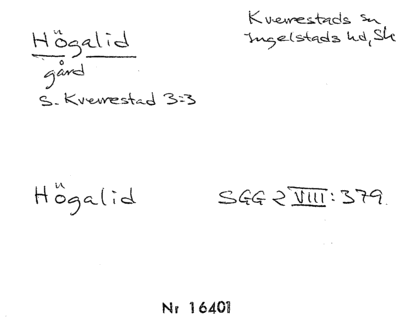 Högalid
gård
S. Kverrestad 3:3
Kverrestads sn
Ingelstads hd, Sk
Högalid SGG 2 VIII: 379.
Nr 16401